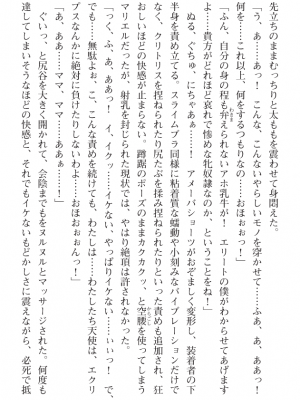 先立ちのままむっちりと太ももを震わせて身悶えた。
「う、あ……っ！　こんな、こんないやらしいモノを穿かせて……ふあ、あ、ああっ！
何を……これ以上、何をするつもりなの……おほぉおっ！」
「ふん、自分の身の程も弁えられないアホ乳牛が！　エリートの僕がわからせてあげます
よ……貴方がどれほど哀れで惨めな牝奴隷なのか、ということをね！」
ぬる、ぐちゅ、にちゃあぁ……！　アメーバショーツがおぞましく変形し、装着者の下
半身を責め立てる。スライムブラ同様に粘着質な蠕動や小刻みなバイブレーションだけで
なく、クリトリスを捏ねられたり尻たぶを揉み捏ねられたりといった責めも追加され、狂
おしいほどの快感が止まらない。蹲踞のポーズのままカクカクッ、と空腰を使ってしまう
マリエルだったが、射乳を封じられた現状では、やはり絶頂は許されなかった。
「くっ、ふぁ、あああっ！　イ、イクッ……イケない、やっぱりイケない……いぃっ！　で、
でも……無駄よぉ、こ、こんな責めを続けても、わたしは……わたしたち天使は、エクリ
プスなんかに絶対に負けたりしないわよ……おほおぉんっ！」
「あ、ああ……ママ、ママ……ああぁ……！」
ぐいっ、と尻谷を大きく開かれて、会陰までもをヌルヌルとマッサージされた。何度も
達してしまいそうなほどの快感と、それでもイケないもどかしさに震えながら、必死で抵